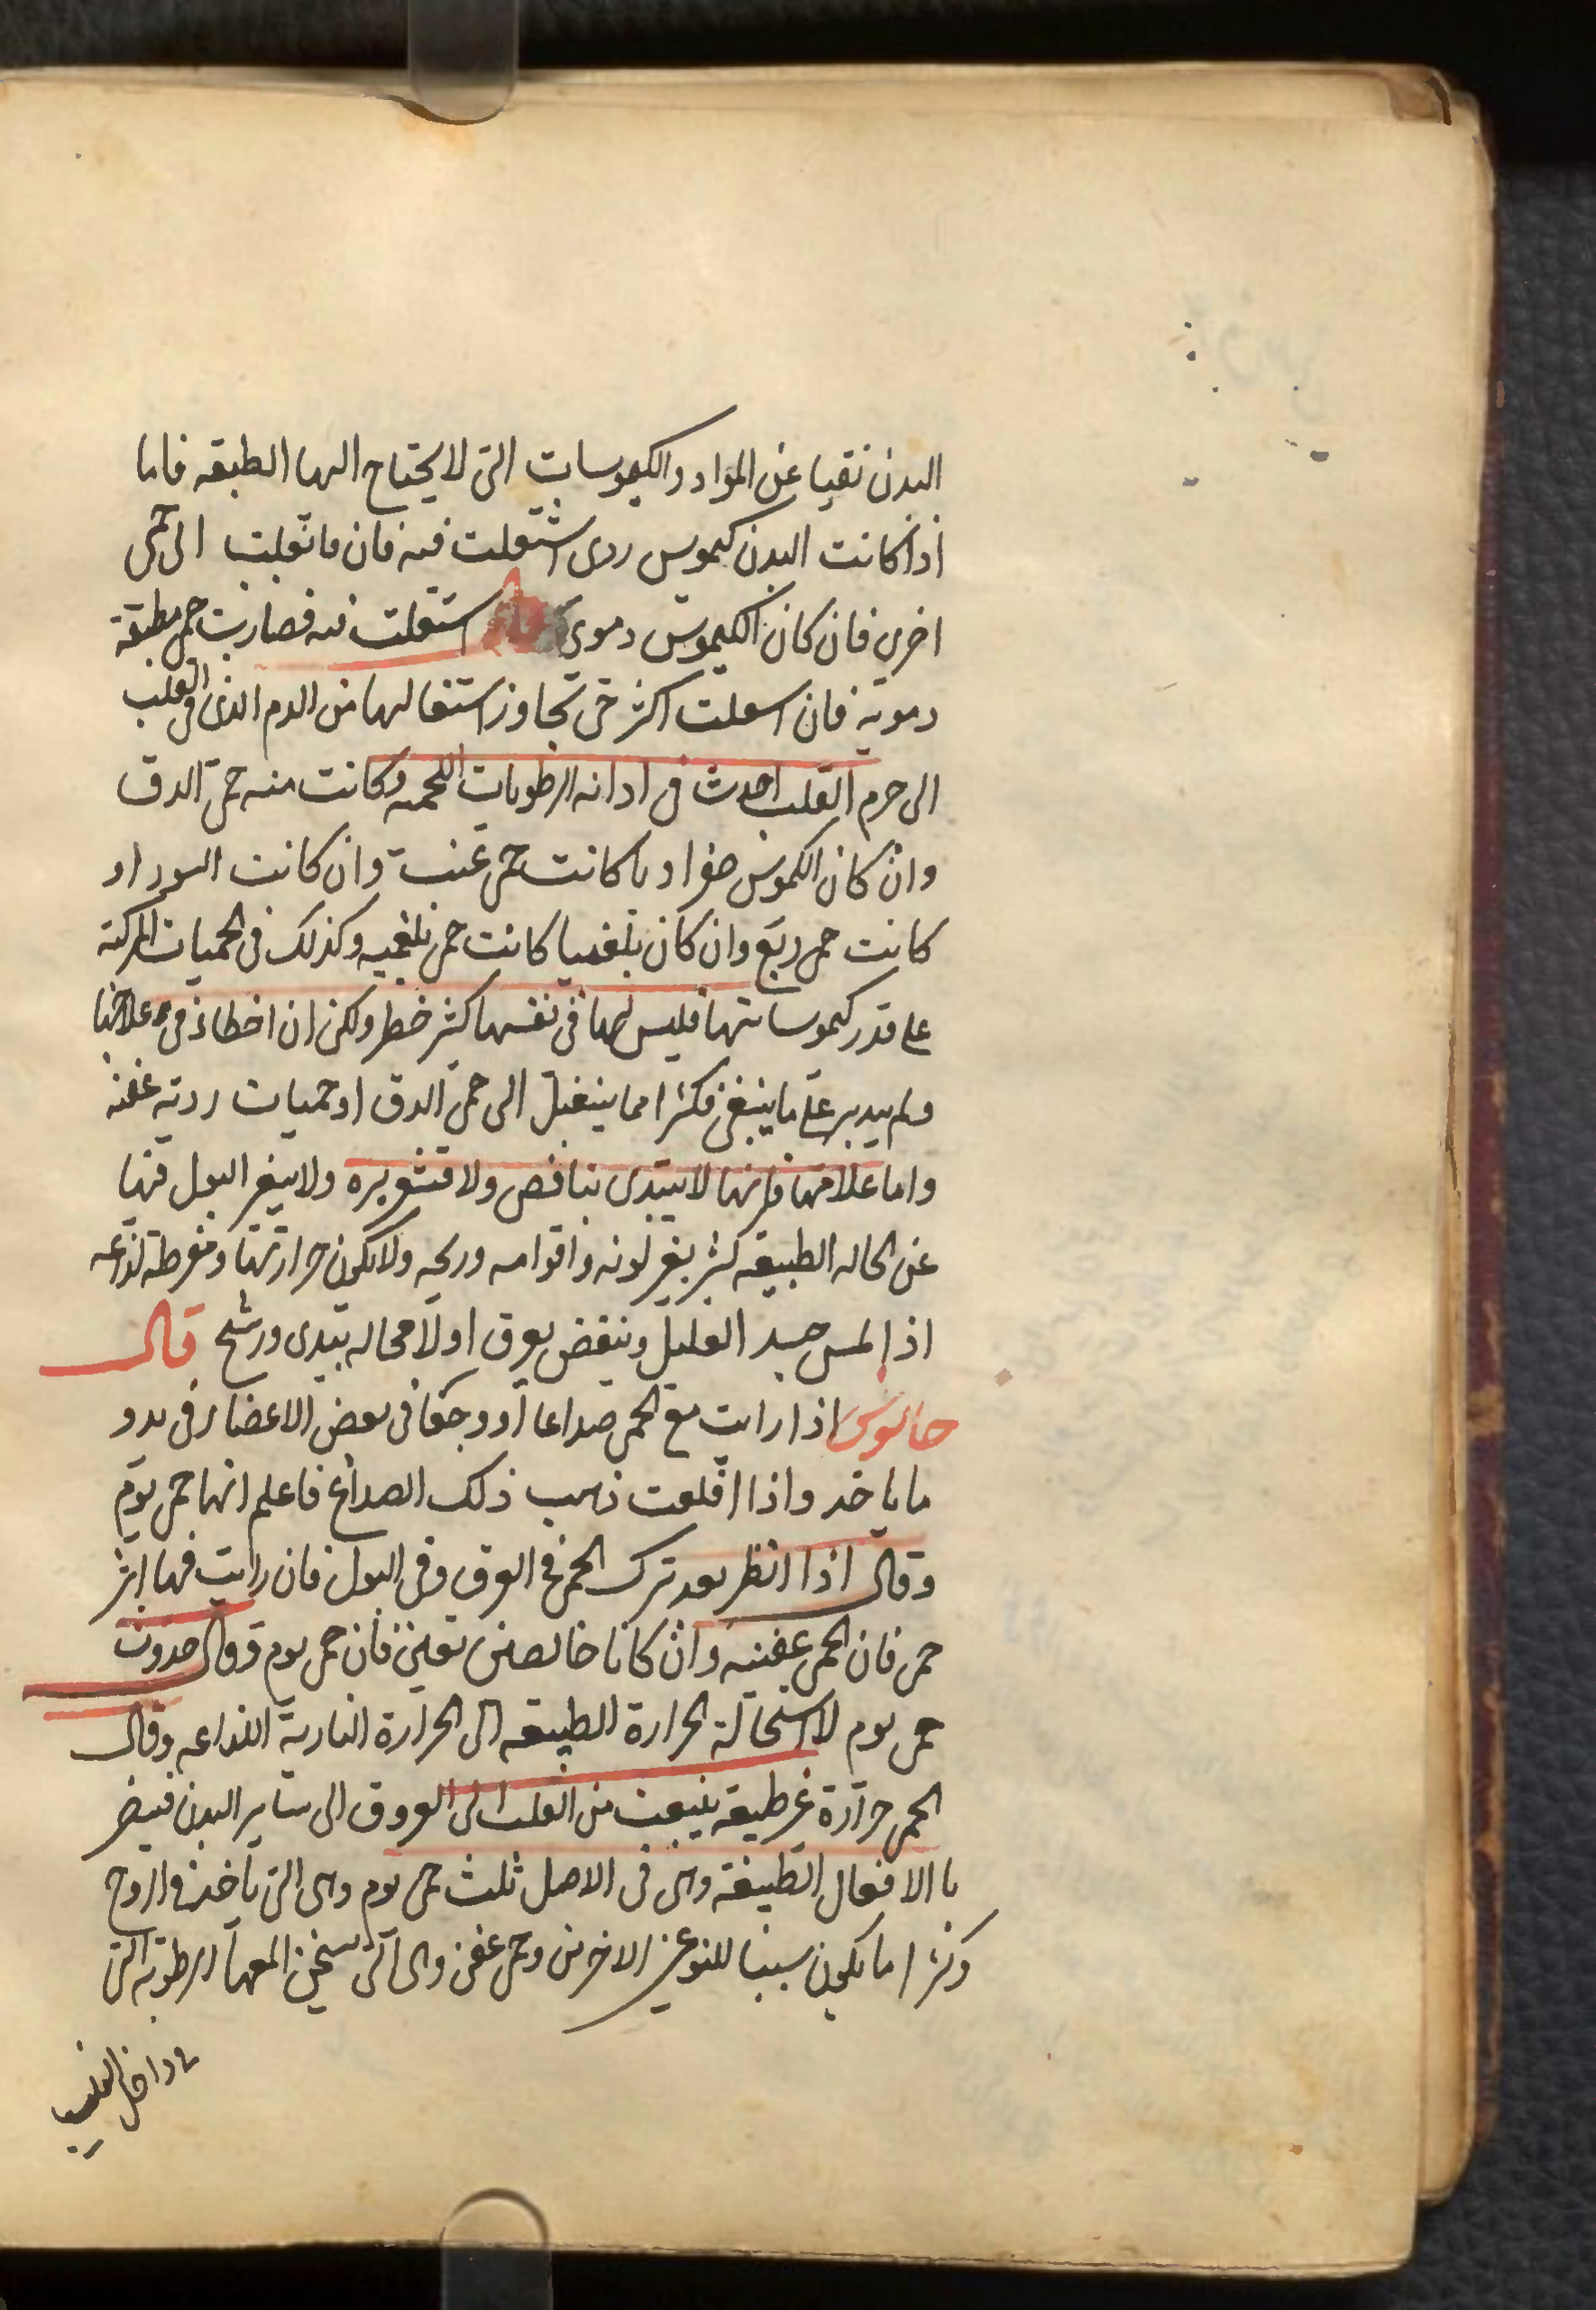 البدن نقيا عن المواد والكيموسات التى لا يحتاج اليها الطبيعه فاما
اذا كانت البدن كيموس ردى اشتعلت فيه فان ما تقلبت الى حمى
اخرى فان كان الكيموس دموى اشتعلت فيه فصارت حمى مطبقة
دمويه فان اسعلت اكثر حتى تجاوز استعالها من الدم الذى فى القلب
الى جرم القلب احدث فى ادانه الرطوبات اللحميه وكانت منه حمى الدق
وان كان الكموس صفراويا كانت حمى غب وان كانت السوداو
كانت حمى ربع وان كان بلغميا كانت حمى بلغميه وكذلك فى الحميات المركبه
على قدر كيموساتها فليس لها فى نفسها كثر خطر ولكن ان اخطاء فى علاجها
ولم يدبر على ما ينبغى فكثرا مما ينتقل الى حمى الدق او حميات رديه عفنه
واما علامتها فانها لا يبتدى بنافض ولا قشعريره ولا يتغير البول فيها
عن الحاله الطبيعه كثر بغير لونه واقوامه وريحه ولا يكون حرارتها ومفرطه لذاعه
اذا لمس جسد العليل وينقض بعرق اولا محاله يتبدى ورشح قال
جالنوس اذا رايت مع الحمى صداعا او وجعا فى بعض الاعضاء فى بدو
ما ياخذ واذا اقلعت ذهب ذلك الصداع فاعلم انها حمى يوم
وقال اذا انظر بعد ترك الحمى فى العرق وفى البول فان رايت فيها اثر
حمى فان الحمى عفنيه وان كانا خالصين نقيين فان حمى يوم وقال حدوث
حمى يوم لاستحالة الحرارة الطبيعه الى الحرارة النارية اللذاعه وقال
الحمى حرارة غير طبيعه ينبعث من القلب الى العروق الى ساير البدن فيضر
با الافعال الطبيعة وهى فى الاصل ثلث حمى يوم وهى التى تاخذ فى الروح
وكثرا ما يكون سببا للنوعين الاخرين وحمى عفن وهى التى سخن المعها الرطوبه التى
داخل القلب